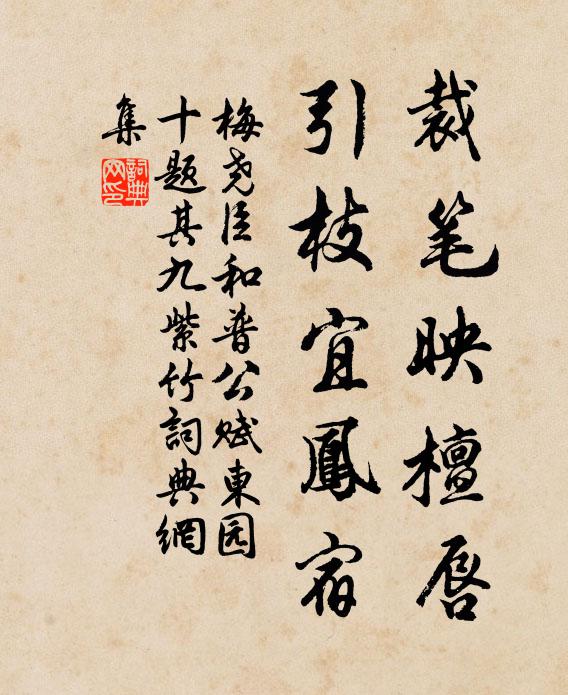 裁笔映檀唇
引枝宜鳳宿
梅尧臣和普公赋東园
十题其九紫竹詞典網
集
詞典
网印